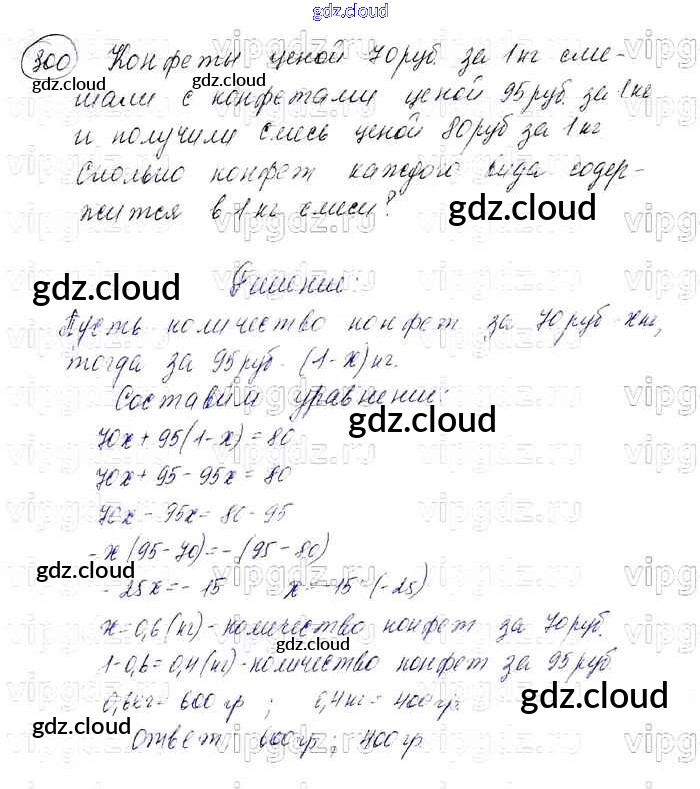 gdz.cloud
300 Конфеты ценой 70 руб. за 1 кг сме-
шали с конфетами ценой 95 руб. за 1 кг
и получили смесь ценой 80 руб за 1 кг
Сколько конфет каждого вида содер-
жится в 1 кг смеси?
Решение:
Пусть количество конфет за 70 руб - x кг,
тогда за 95 руб - (1-x) кг.
Составим уравнение:
70x + 95(1-x) = 80
70x + 95 - 95x = 80
70x - 95x = 80 - 95
-x(95-70) = -(95-80)
-25x = -15 x = -15:(-25)
x = 0,6 (кг) - количество конфет за 70 руб.
1-0,6 = 0,4 (кг) - количество конфет за 95 руб
0,6 кг = 600 гр ; 0,4 кг = 400 гр.
Ответ: 600 гр ; 400 гр.